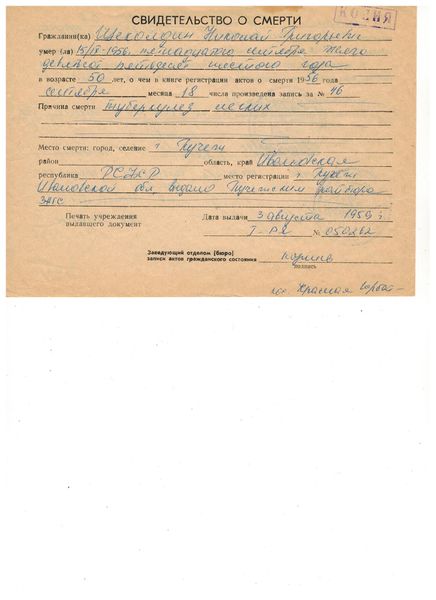 СВИДЕТЕЛЬСТВО О СМЕРТИ
КОПИЯ
Гражданин(ка) Щеколдин Николай Григорьевич
умер (ла) 15/IX-1956 пятнадцатого сентября тысяча
девятьсот пятьдесят шестого года
в возрасте 50 лет, о чем в книге регистрации актов о смерти 1956
сентября месяца 18 числа произведена запись за № 46
Причина смерти туберкулез легких
Место смерти: город, селение г. Пучеж
район область, край Ивановская
республика РСФСР место регистрации г. Пучеж
Ивановской обл. выдано Пучежским райбюро
ЗАГС
Печать учреждения выдавшего документ
Дата выдачи 3 августа 1959 г.
№ 050262
Заведующий отделом [бюро]
записи актов гражданского состояния
подпись
Красная